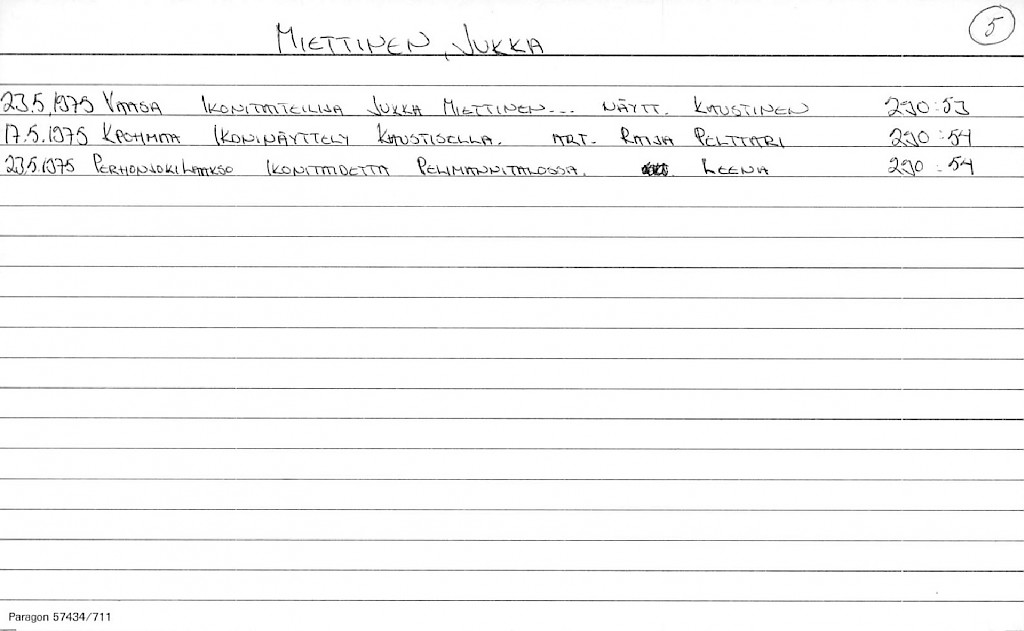 MIETTINEN, JUKKA
5
23.5.1975 VAASA IKONITAITEILIJA JUKKA MIETTINEN... NÄYTT. KAUSTINEN 290:53
17.5.1975 KP IKONINÄYTTELY KAUSTISELLA. ART. RAIJA PELTTARI 290:54
23.5.1975 PERHONJOKILAAKSO IKONITAIDETTA PELIMANNITALOSSA. LEENA 290:54
Paragon 57434/711